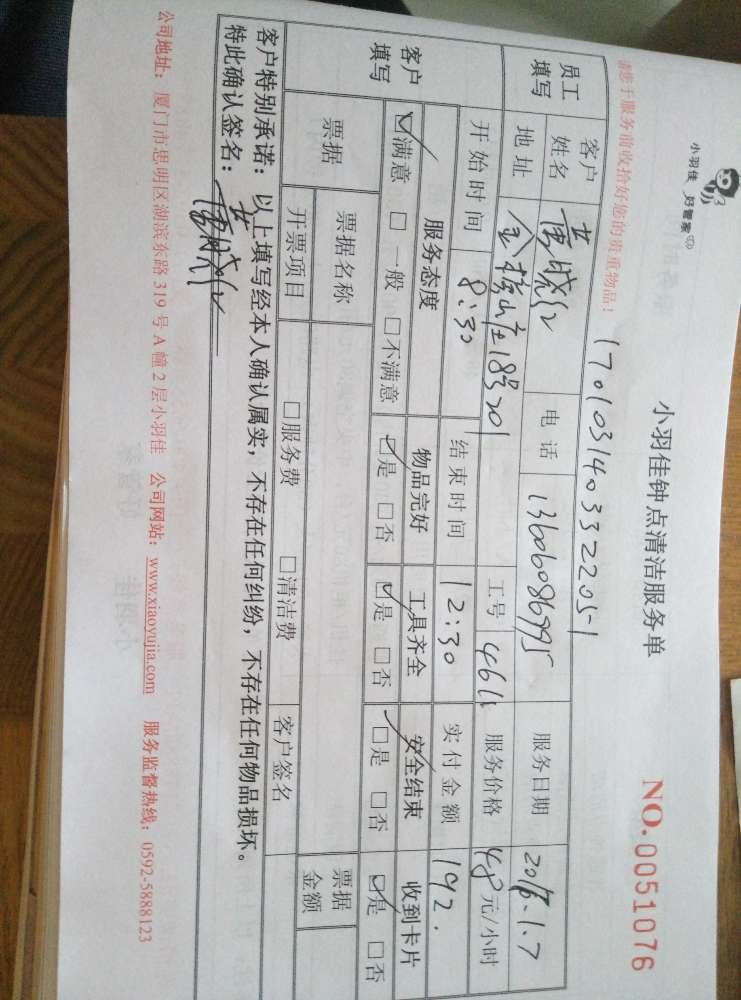 小羽佳 好管家
小羽佳钟点清洁服务单
NO.0051076
请您于服务前收拾好您的贵重物品！
1701031403322051
员工填写
客户姓名 黄晓红 电话 服务日期 2018.1.7
地址 金榜山庄18号201 工号 4611 服务价格 48元/小时
开始时间 8:30 结束时间 12:30 实付金额 192.
客户填写
服务态度 物品完好 工具齐全 安全结束 收到卡片
☑满意 □一般 □不满意 ☑是 □否 ☑是 □否 ☑是 □否 ☑是 □否
票据 票据名称 票据金额
开票项目 □服务费 □清洁费 客户签名
客户特别承诺：以上填写经本人确认属实，不存在任何纠纷，不存在任何物品损坏。
特此确认签名：黄晓红
公司地址：厦门市思明区湖滨东路319号A幢2层小羽佳 公司网站：www.xiaoyujia.com 服务监督热线：0592-5888123